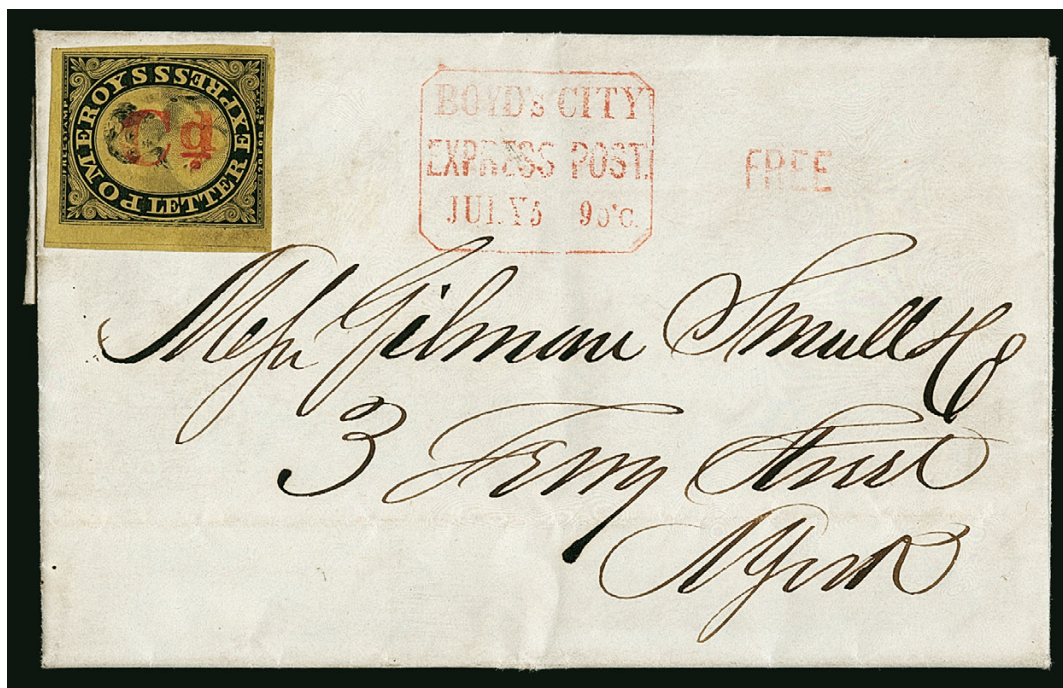 POMEROY'S LETTER EXPRESS
FREE STAMP
20 FOR $1
Cd
BOYD'S CITY
EXPRESS POST.
JULY 5 9 O'C.
FREE
Mess Gilman Smull & Co
3 Ferry Street
N York